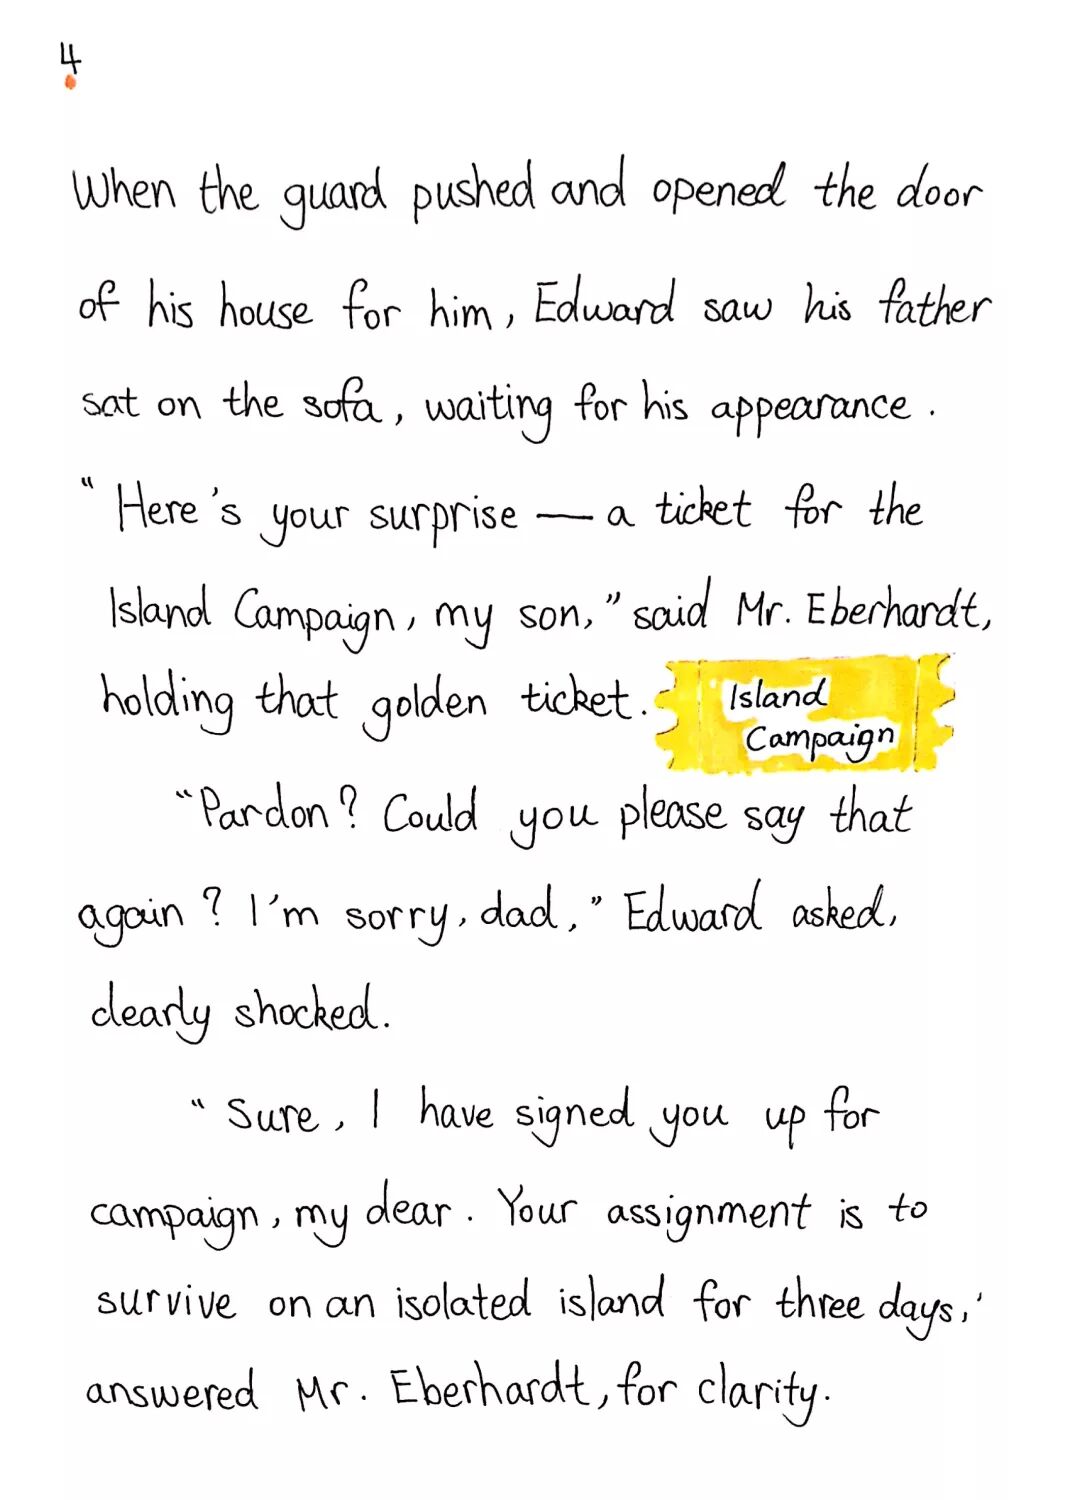 4
When the guard pushed and opened the door
of his house for him, Edward saw his father
sat on the sofa, waiting for his appearance.
"Here's your surprise — a ticket for the
Island Campaign, my son," said Mr. Eberhardt,
holding that golden ticket.
Island
Campaign
"Pardon? Could you please say that
again? I'm sorry, dad," Edward asked,
clearly shocked.
"Sure, I have signed you up for
campaign, my dear. Your assignment is to
survive on an isolated island for three days,'
answered Mr. Eberhardt, for clarity.